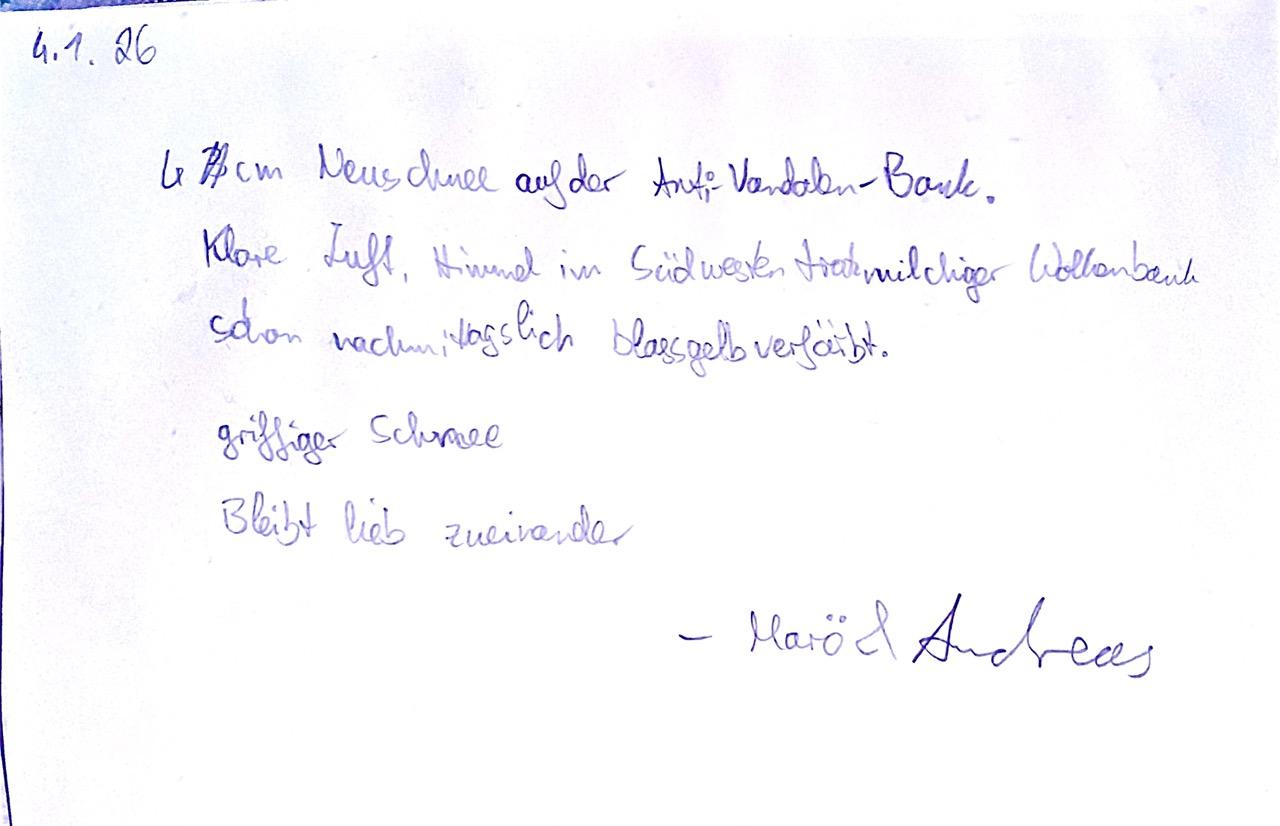 4.1.26
4 cm Neuschnee auf der Anti-Vandalen-Bank.
Klare Luft, Himmel im Südwesten trotz milchiger Wolkenbank
schon nachmittagslich blassgelb verfärbt.
griffiger Schnee
Bleibt lieb zueinander
– & Andreas